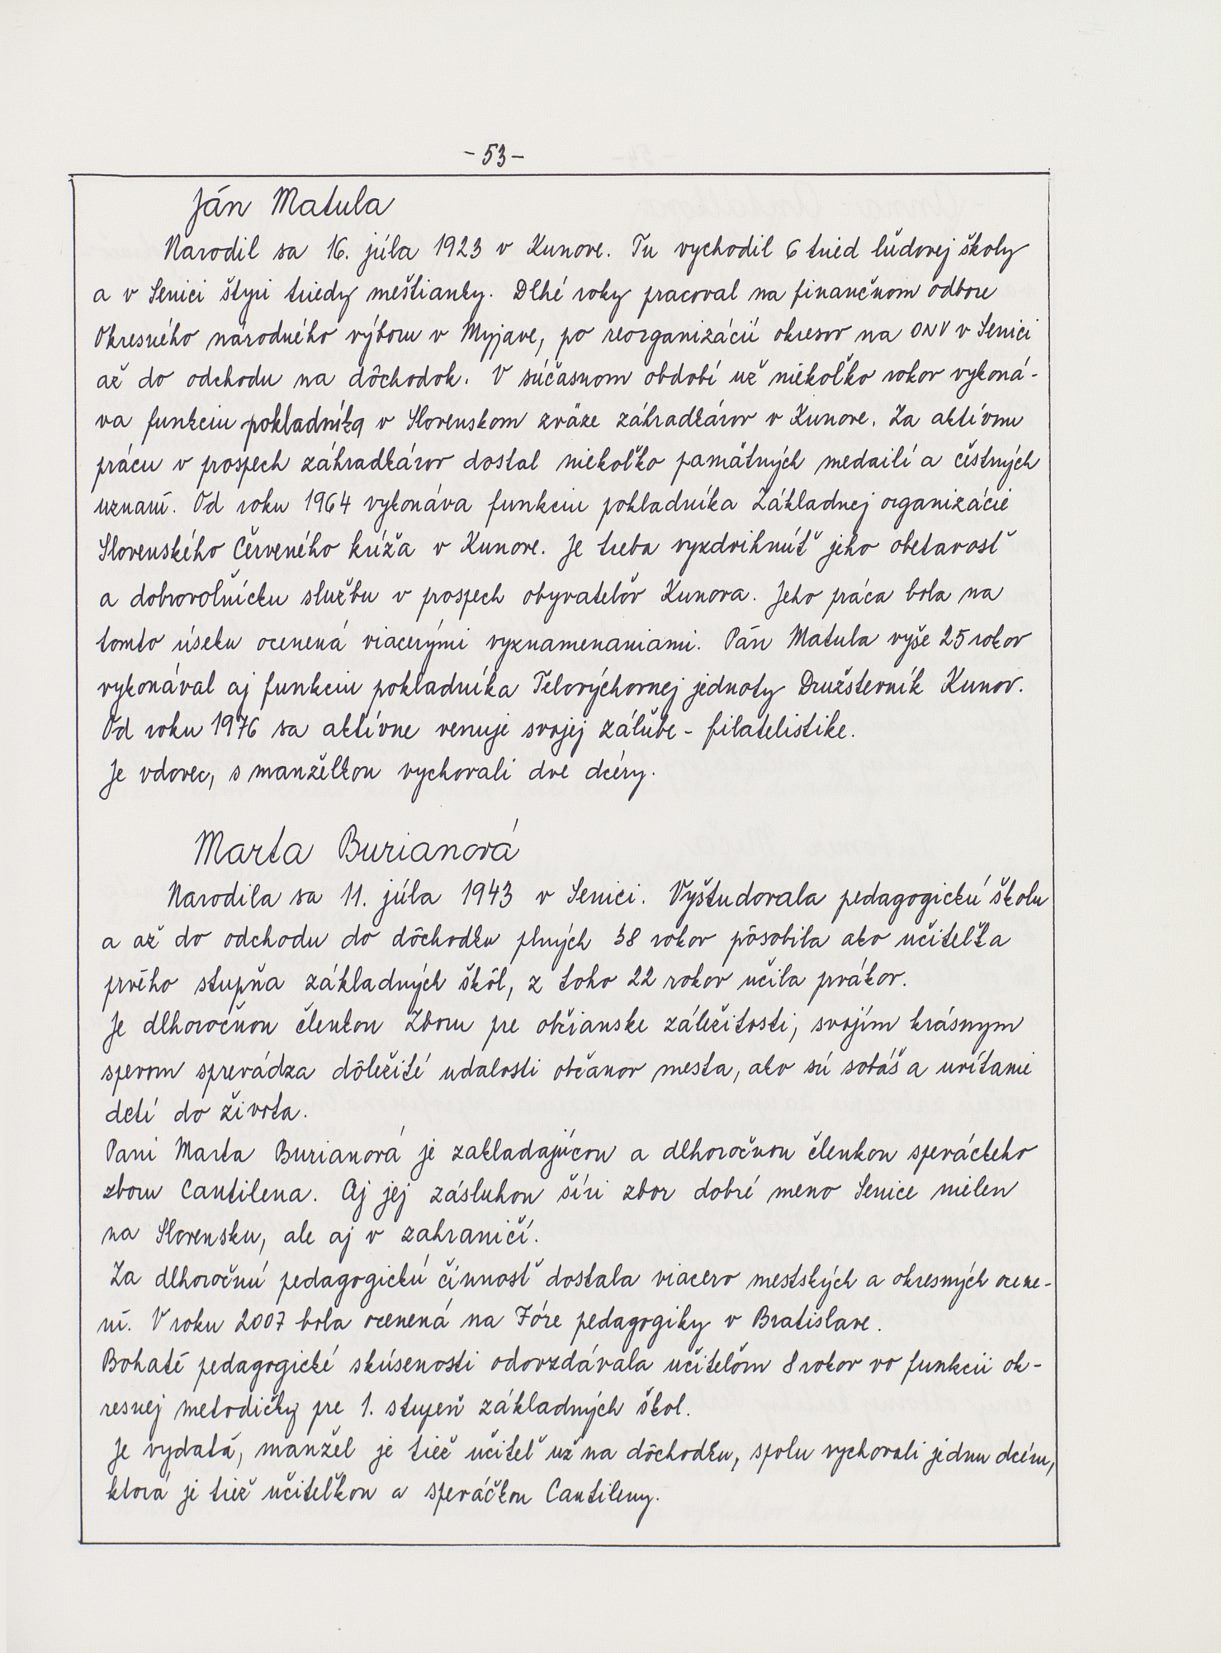 - 53 -
Ján Matula
Narodil sa 16. júla 1923 v Kunove. Tu vychodil 6 tried ľudovej školy
a v Senici štyri triedy meštianky. Dlhé roky pracoval na finančnom odbore
Okresného národného výboru v Myjave, po reorganizácii okresov na ONV v Senici
až do odchodu na dôchodok. V súčasnom období už niekoľko rokov vykoná-
va funkciu pokladníka v Slovenskom zväze záhradkárov v Kunove. Za aktívnu
prácu v prospech záhradkárov dostal niekoľko pamätných medailí a čestných
uznaní. Od roku 1964 vykonáva funkciu pokladníka Základnej organizácie
Slovenského Červeného kríža v Kunove. Je treba vyzdvihnúť jeho obetavosť
a dobrovoľnícku službu v prospech obyvateľov Kunova. Jeho práca bola na
tomto úseku ocenená viacerými vyznamenaniami. Pán Matula vyše 25 rokov
vykonával aj funkciu pokladníka Telovýchovnej jednoty Družstevník Kunov.
Od roku 1976 sa aktívne venuje svojej záľube - filatelistike.
Je vdovec, s manželkou vychovali dve dcéry.
Marta Burianová
Narodila sa 11. júla 1943 v Senici. Vyštudovala pedagogickú školu
a až do odchodu do dôchodku plných 38 rokov pôsobila ako učiteľka
prvého stupňa základných škôl, z toho 22 rokov učila prvákov.
Je dlhoročnou členkou Zboru pre občianske záležitosti, svojím krásnym
spevom sprevádza dôležité udalosti občanov mesta, ako sú sobáš a uvítanie
detí do života.
Pani Marta Burianová je zakladajúcou a dlhoročnou členkou speváckeho
zboru Cantilena. Aj jej zásluhou šíri zbor dobré meno Senice nielen
na Slovensku, ale aj v zahraničí.
Za dlhoročnú pedagogickú činnosť dostala viacero mestských a okresných ocene-
ní. V roku 2007 bola ocenená na Fóre pedagogiky v Bratislave.
Bohaté pedagogické skúsenosti odovzdávala učiteľom 8 rokov vo funkcii ok-
resnej metodičky pre 1. stupeň základných škol.
Je vydatá, manžel je tiež učiteľ už na dôchodku, spolu vychovali jednu dcéru,
ktorá je tiež učiteľkou a speváčkou Cantileny.